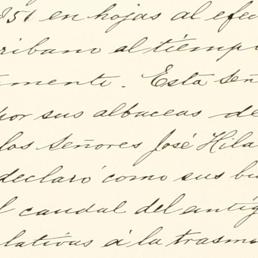 851 en hojas al efec
ribano al tiempo
mente. Esta Señ
por sus albaceas de
los Señores José Hila
declaró como sus bi
l caudal del antig
lativas á la trasm